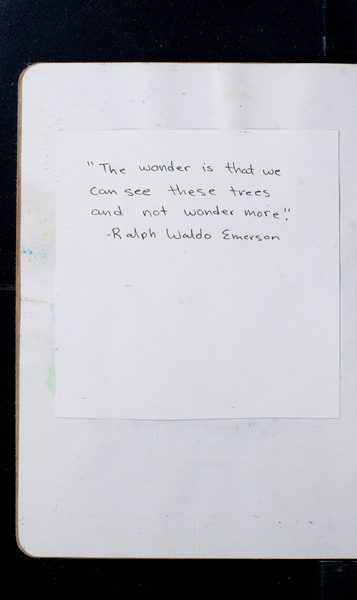 "The wonder is that we
can see these trees
and not wonder more."
-Ralph Waldo Emerson